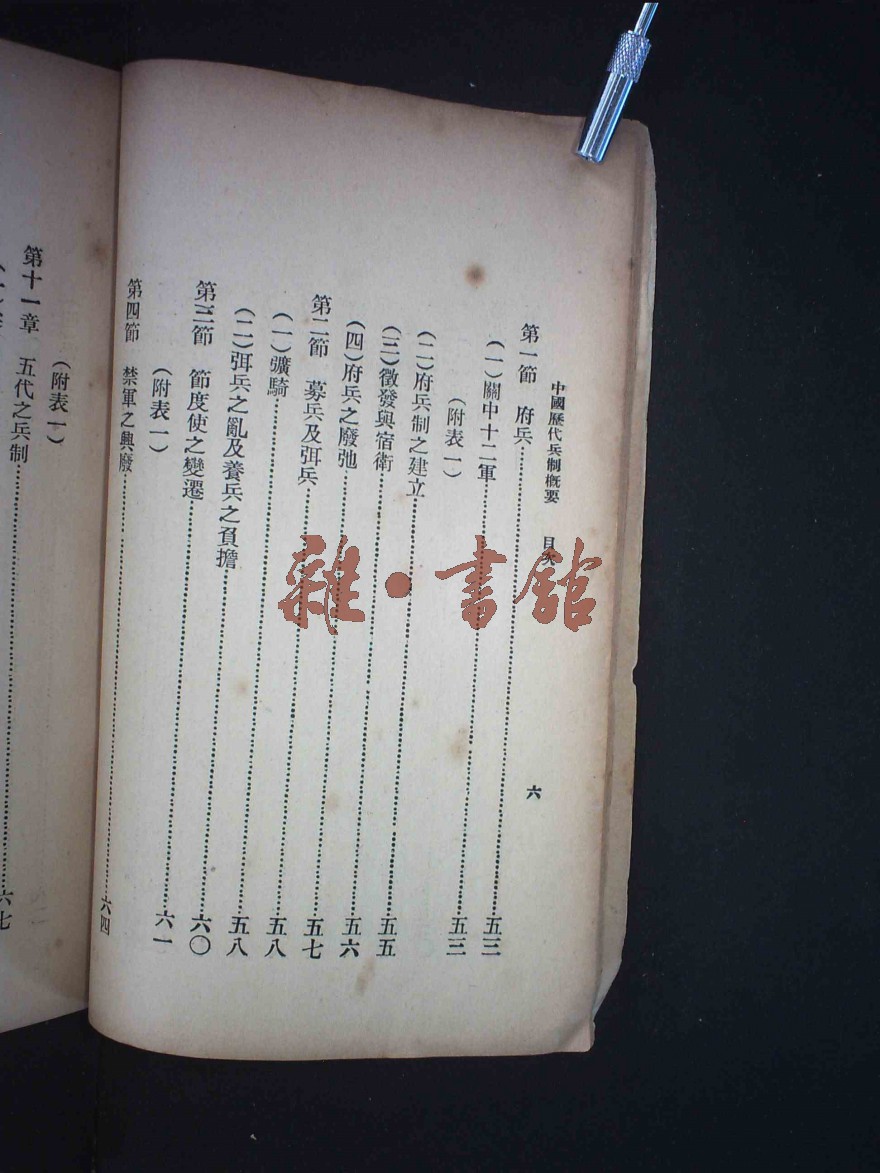 中國歷代兵制概要 目次 六
第一節 府兵…………五三
(一)關中十二軍…………五三
(附表一)
(二)府兵制之建立…………五五
(三)徵發與宿衛…………五六
(四)府兵之廢弛…………五七
第二節 募兵及弭兵…………五八
(一)彍騎…………五八
(二)弭兵之亂及養兵之負擔…………六〇
第三節 節度使之變遷…………六一
(附表一)
第四節 禁軍之興廢…………六四
(附表一)
第十一章 五代之兵制…………六七
雜·書館